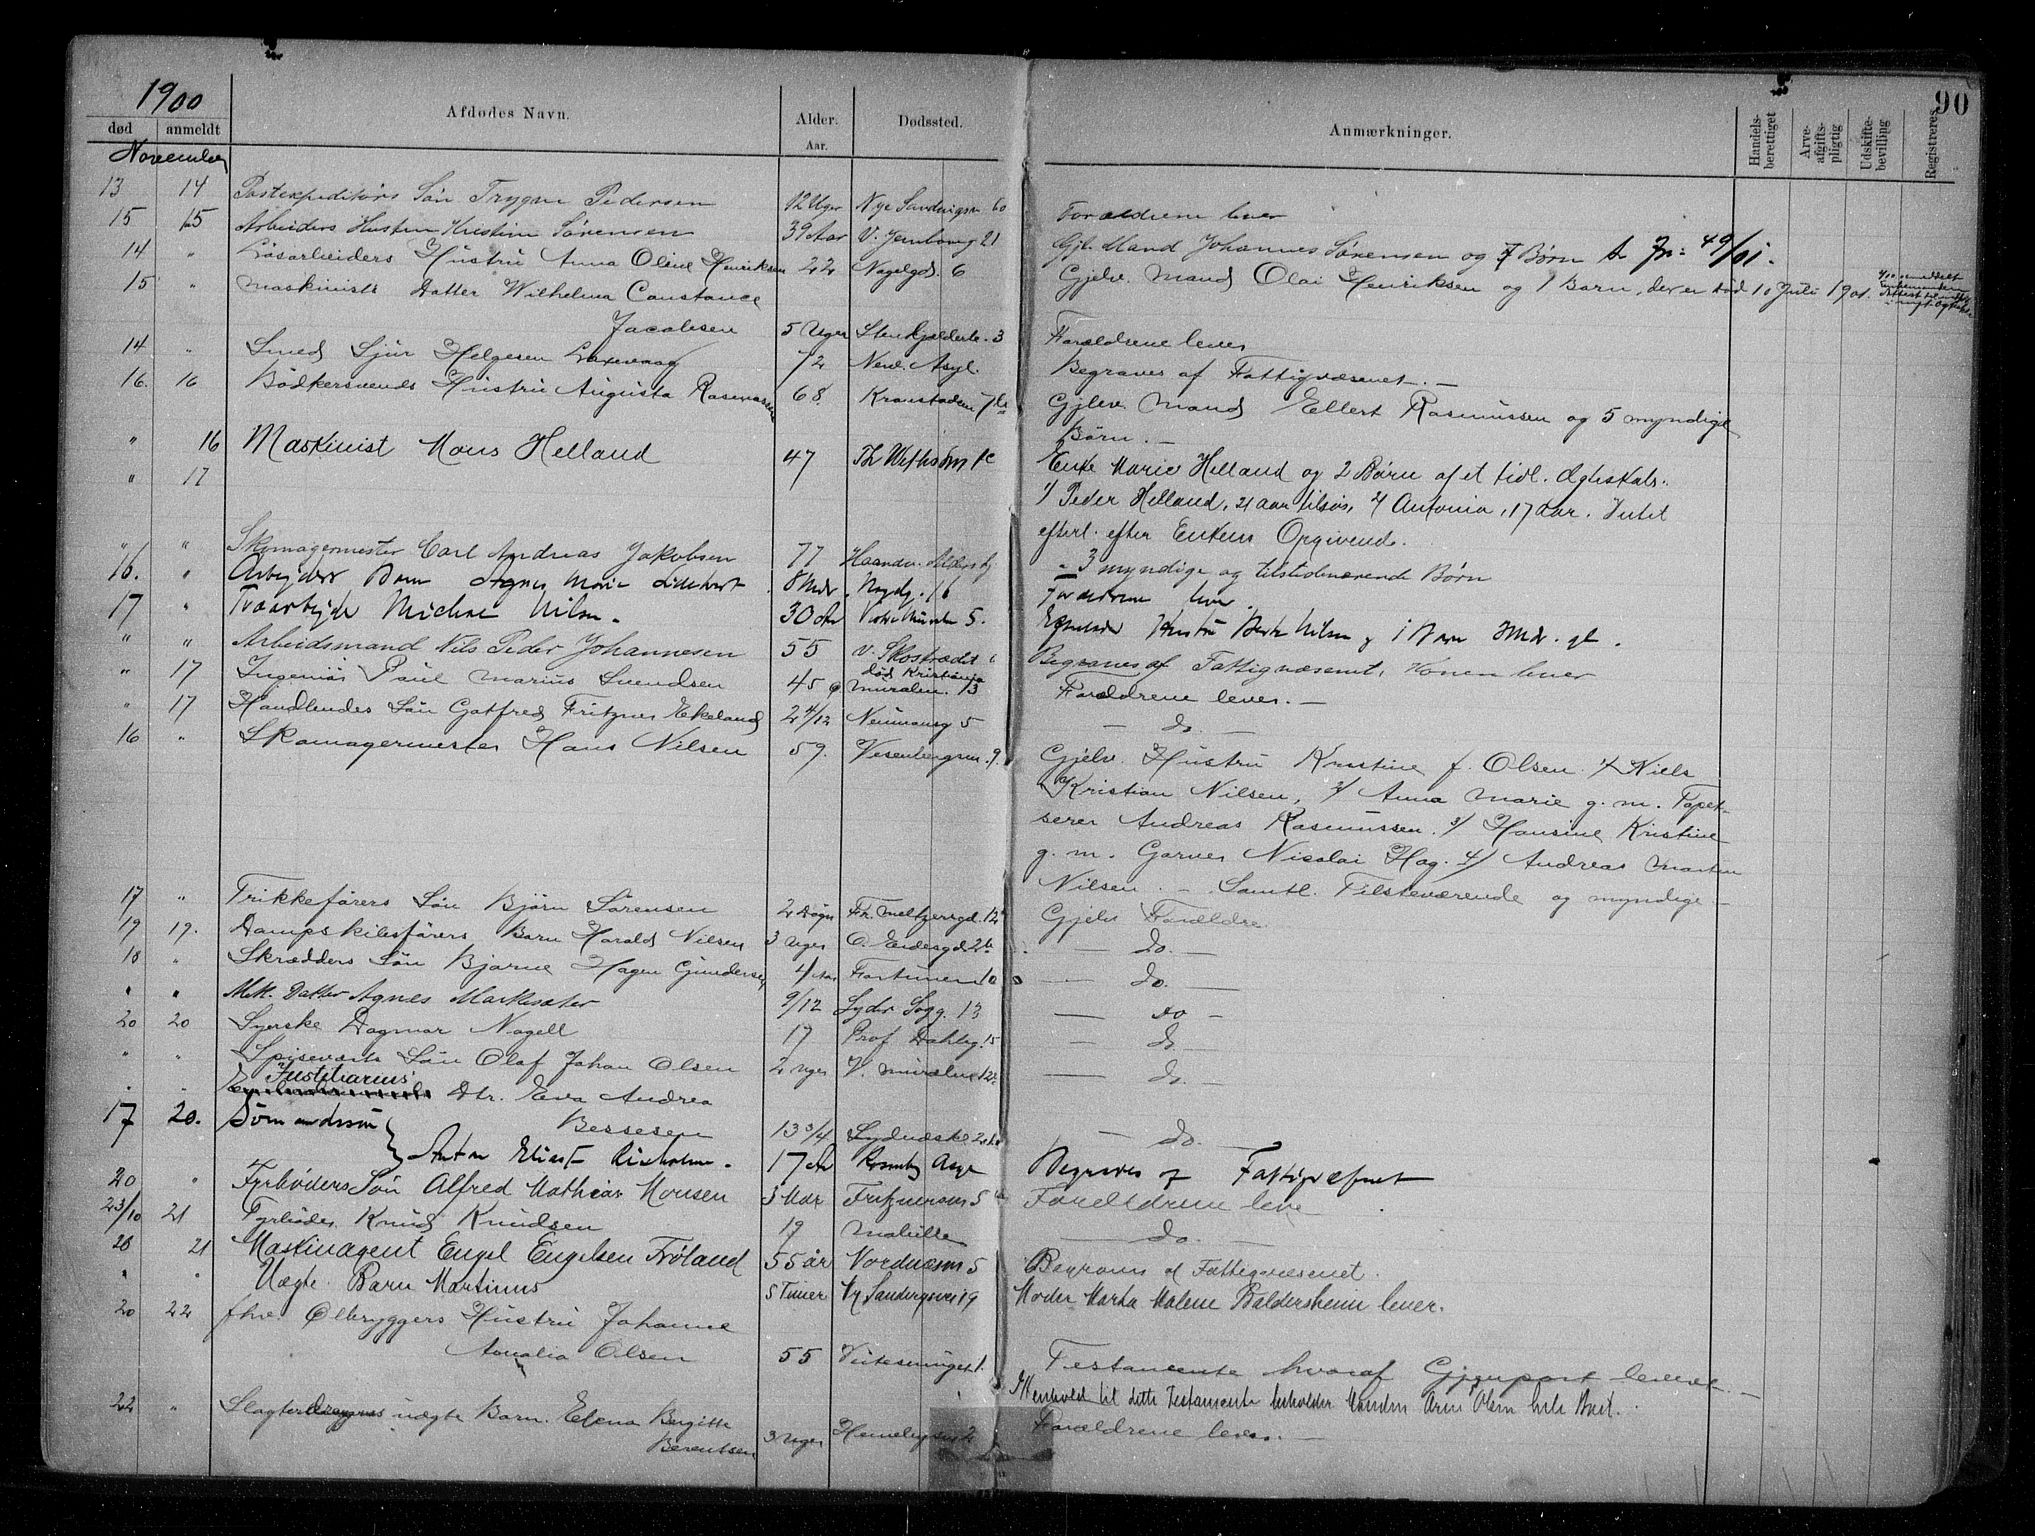 90
1900
død anmeldt Afdødes Navn. Alder. Aar. Dødssted. Anmærkninger. Handelsberettiget Arveafgiftspligtig Udskiftebevilling Registreres
November
13 14 Postexpeditørs Søn Trygve Pedersen 12 Uger Nye Sandvigsv. 60 Forældrene lever
15 15 Arbeiders Hustru Kristine Sørensen 39 Aar V. Jernbaneg 21 Gjl. Mand Johannes Sørensen og 7 Børn 49/01.
14 " Løsarbeiders Hustru Anna Oline Henriksen 22 Nagelgd. 6 Gjelv. Mand Olai Henriksen og 1 Barn, der er død 10 Juli 1901.
15 " Maskinists Datter Wilhelmina Constance
Jacobsen 5 Uger Stenkjelderb. 3 Forældrene lever
14 " Smed Sjur Helgesen Laxevaag 72 Asyl. Begraves af Fattigvæsenet. —
16. 16 Bødkersvends Hustru Augusta Rasmussen 68. Gjlev. Mand Ellert Rasmussen og 5 myndige
Børn. —
" 16 Maskinist Mons Helland 47 Enke Marie Helland og 2 Børn af et tidl. Ægteskab..
" 17 1/ Peder Helland, 21 aar tilsøs, 2/ Antonia, 17 aar. Intet
efterl. efter Enkens Opgivende.
" " Skomagermester Carl Andreas Jakobsen 77 Haandv. 3 myndige og tilstedeværende Børn
16. " Arbejders Barn Agnes Marie 8 Mdr. Nygdg. 16 Forældrene lever.
17 " Michael Nilsen. 30 Aar 5. Hustru Berte Nilsen og 1 Barn
" " Arbeidsmand Nils Peder Johannesen 55 V. Skostrædet Begraves af Fattigvæsenet, Konen lever
" 17 Ingeniør Paul Marius Svendsen 45 død Kristiania Muralm. 13 Forældrene lever. —
" 17 Handlendes Søn Gotfred Fritzner Ekeland 2 4/12 Neumansg 5 — do. —
16 " Skomagermester Hans Nilsen 59. Vesenbergsm. 9. Gjelv. Hustru Kristine f. Olsen. 1/ Niels
Kristian Nilsen, 2/ Anna Marie g. m. Tapet-
serer Andreas Rasmussen. 3/ Hansine Kristine
g. m. Garver Nicolai Hag. 4/ Andreas Martin
Nilsen. — Samtl. Tilsteværende og myndige —
17 " Trikkeførers Søn Bjørn Sørensen 2 Døgn Fr. Meltzersgd. 12 Gjelv Forældre
19 19. Dampskibsførers Barn Harald Nilsen 3 Uger — do. —
18 " Skrædders Søn Bjarne Hagen Gundersen 4 Aar Fortunen 10 — do. —
" " Mk. Datter Agnes Markesæter 9/12 Lyder Sagg. 13 — do —
20 20 Syerske Dagmar Nagell 17 Prof Dahlsg. 15 — do —
" " Spiseværts Søn Olaf Johan Olsen 2 Uger V. Muralm. 12 — do. —
" " Justitiarius Dtr. Eva Andrea
Bessesen 13 3/4 — do. —
17 20. Sømandssøn Anton Elias 17 Aar Begraves af Fattigvæsenet
20 " Fyrbøders Søn Alfred Mathias Monsen 3 Mdr Fritznersm 5 Forældrene leve
23/10 21 Fyrbøder Knud Knudsen 19 — do. —
20 21 Maskinagent Engel Engelsen Frøland 55 år Nordnæsm 5 Begraves af Fattigvæsenet.
" " Uægte Barn Martinus 5 Timer Ny Sandvigsvei 19 Moder Marta Malene Baldersheim lever.
20 22 fhv. Ølbryggers Hustru Johanne
Amalia Olsen 55 1. Testamente hvoraf Gjenpart leveret. —
I Henhold til dette Testamente beholder Manden Arne Olsen hele Boet.
22 " Slagterdrengs uægte Barn. Elena Birgitte
Berentsen 3 Uger 2 Forældrene lever. —